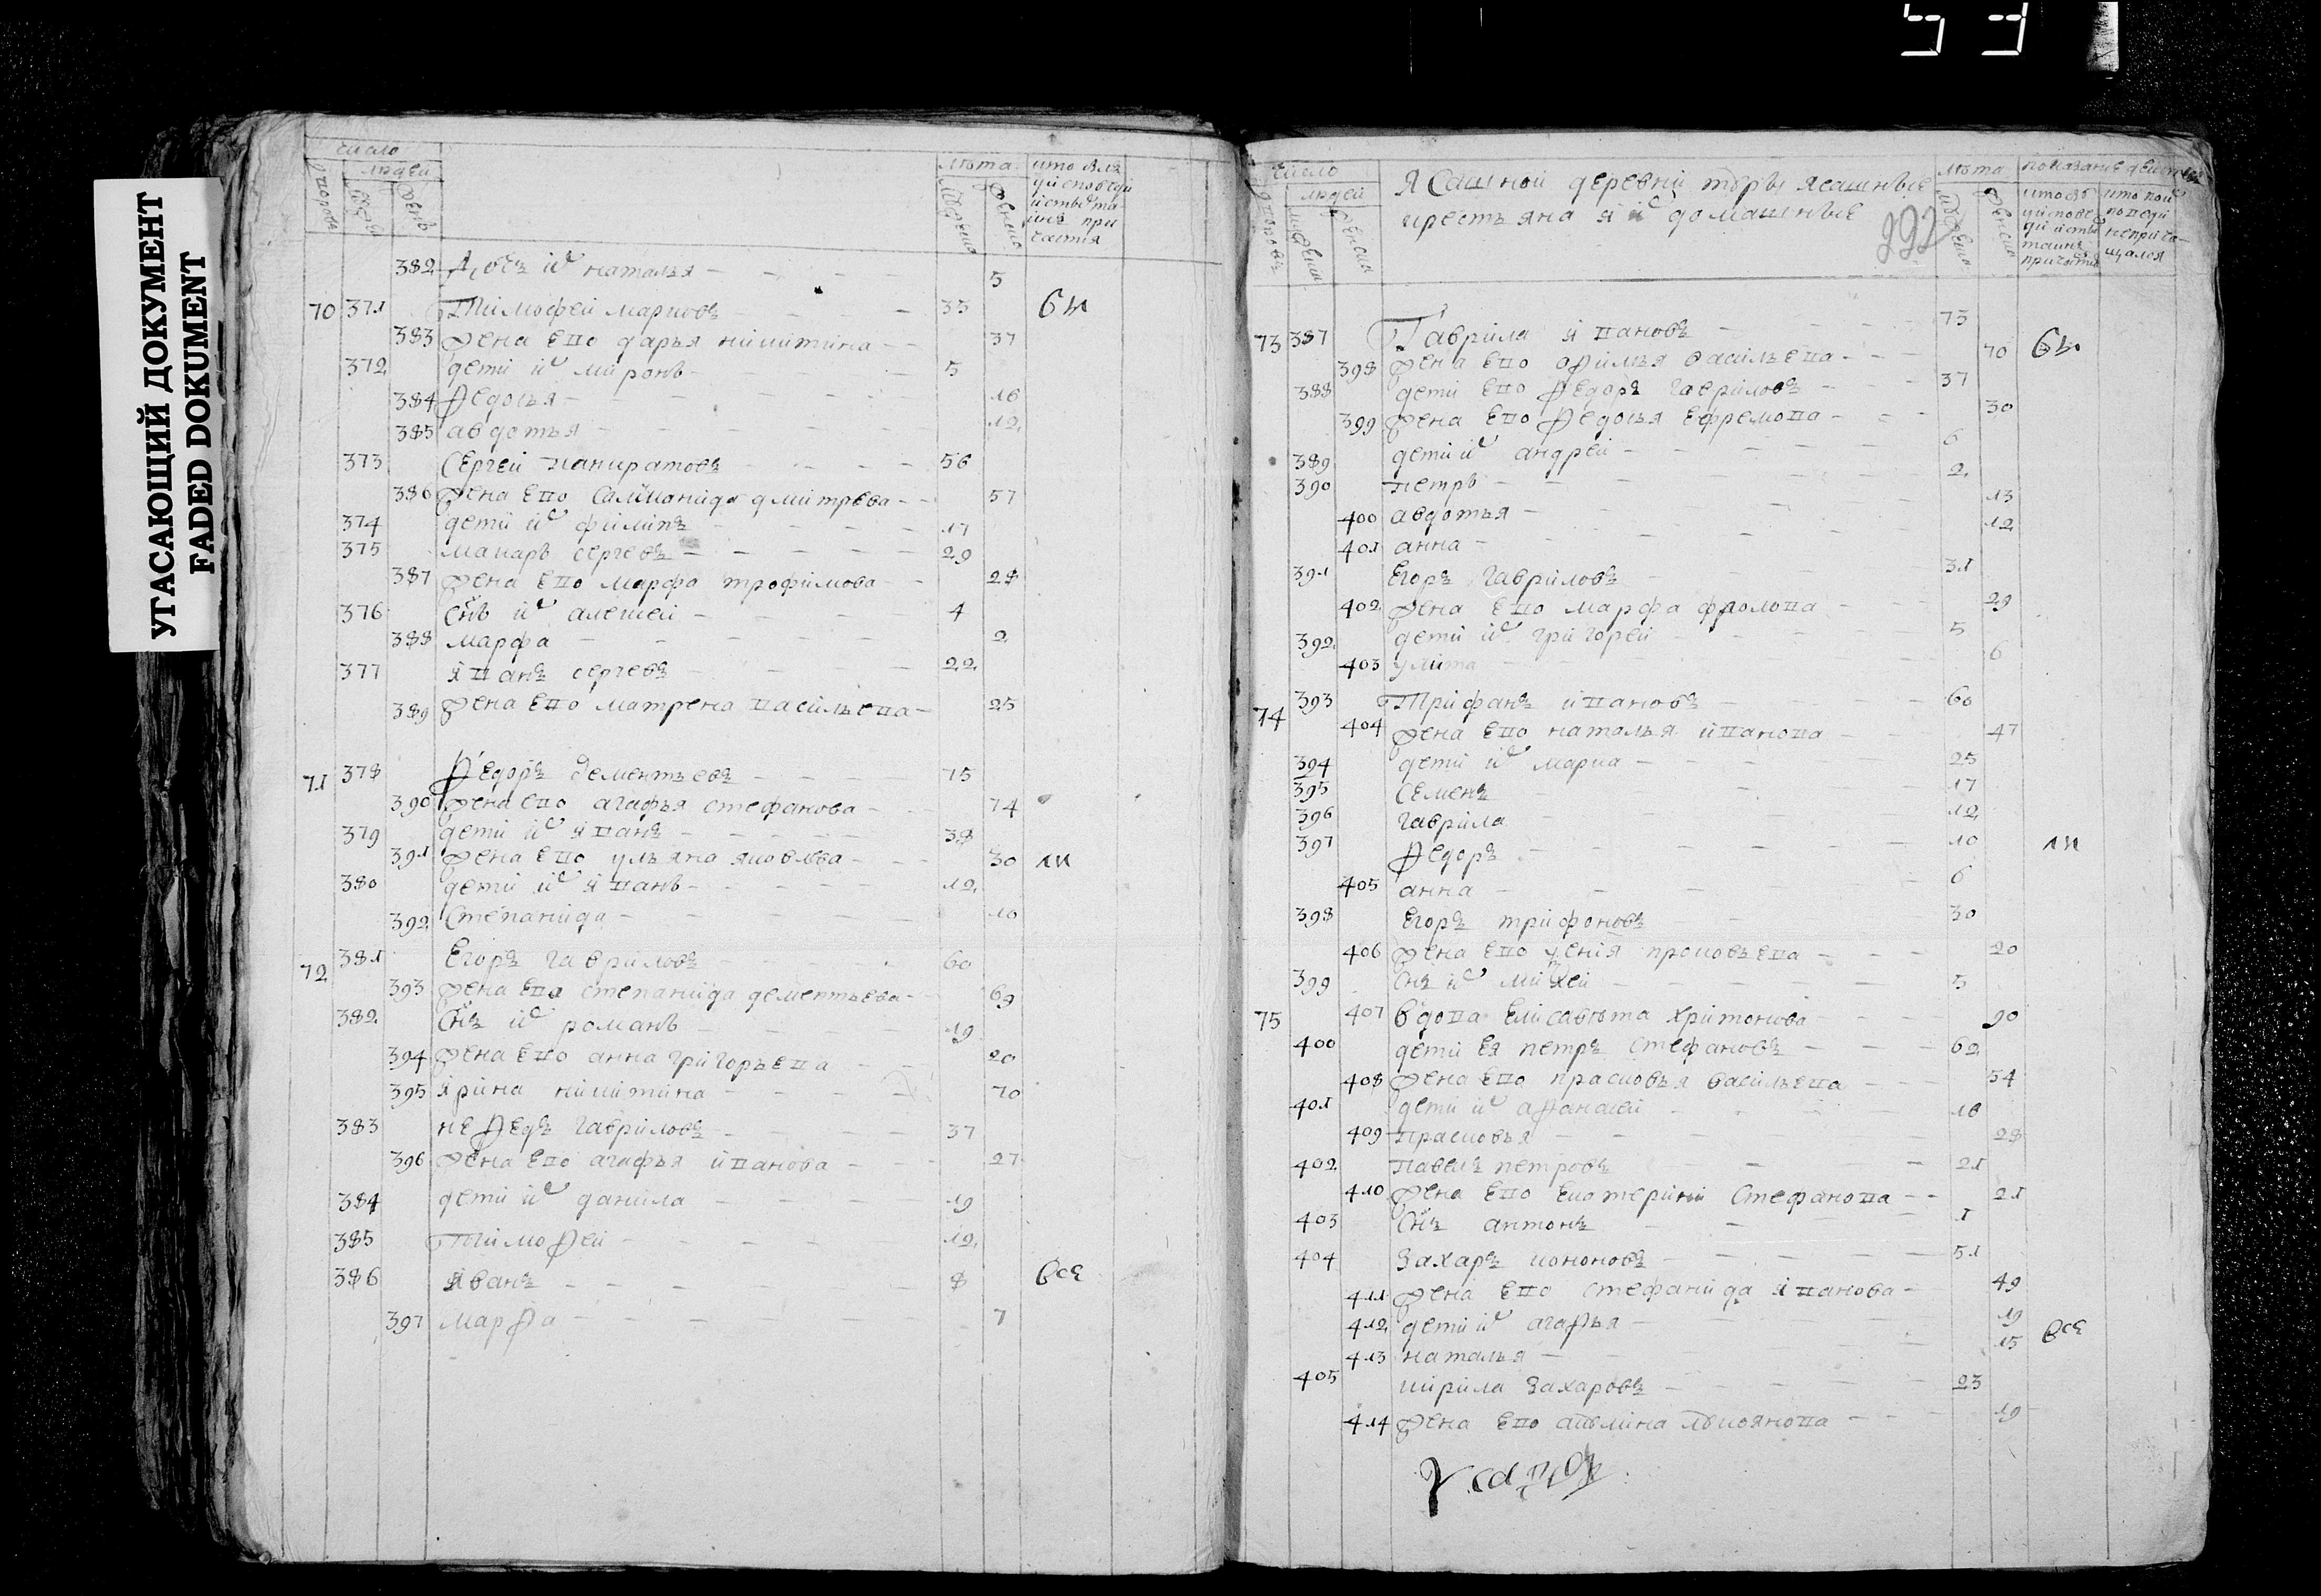 УГАСАЮЩИЙ ДОКУМЕНТ
FADED DOKUMENT
число
людей
лѣта
382 дочь их наталья 5
70 371 Тимофей марковъ 35
383 жена ево дарья никитина 37
372 дети их миронъ 5
384 Федосья 16
385 авдотья 12
373 Сергей панкратовъ 56
386 жена ево Саломанида дмитрева 57
374 дети их филипъ 17
375 макаръ сергевъ 29
387 жена ево марфа трофимова 28
376 снъ их алексей 4
388 марфа 2
377 иванъ сергевъ 22
389 жена ево матрена васильева 25
71 378 Федоръ дементьевъ 75
390 жена ево агафья стефанова 74
379 дети их иванъ 38
391 жена ево ульяна яковлева 30
380 дети их иванъ 12
392 Степанида 10
72 381 Егоръ гавриловъ 60
393 жена ево степанида дементьева 69
382 Снъ их романъ 19
394 жена ево анна григорьева 20
395 ирина никитина 70
383 неФедъ гавриловъ 37
396 жена ево агафья иванова 27
384 дети их данила 19
385 Тимофей 12
386 иванъ 8 все
397 марфа 7
53
число
людей
Ясашной деревни ясашные
крестьяна и их домашные
392
лѣта
73 387 Гаврила ивановъ 73
398 жена ево афимья васильева 70
388 дети ево Федоръ гавриловъ 37
399 жена ево Федосья Ефремова 30
389 дети их андрей 6
390 петръ 2
400 авдотья 13
401 анна 12
391 Егоръ гавриловъ 31
402 жена ево марфа фролова 29
392 дети их григорей 5
403 улита 6
74 393 Трифанъ ивановъ 60
404 жена ево наталья иванова 47
394 дети их марка 25
395 Семенъ 17
396 гаврила 12
397 Федоръ 10
405 анна 6
398 Егоръ трифоновъ 30
406 жена ево проковьева 20
399 Снъ их 5
75 407 вдова Елисавѣта Харитонова 90
400 дети Ея петръ Стефановъ 62
408 жена ево прасковья васильева 54
401 дети их афанасей 18
409 прасковья 28
402 павелъ петровъ 21
410 жена ево Екатерина Стефанова 21
403 Снъ антонъ 1
404 Захаръ кононовъ 51
411 жена ево стефанида иванова 49
412 дети их агафья 19
413 наталья 15 все
405 кирила Захаровъ 23
414 жена ево акилина лукоянова 19